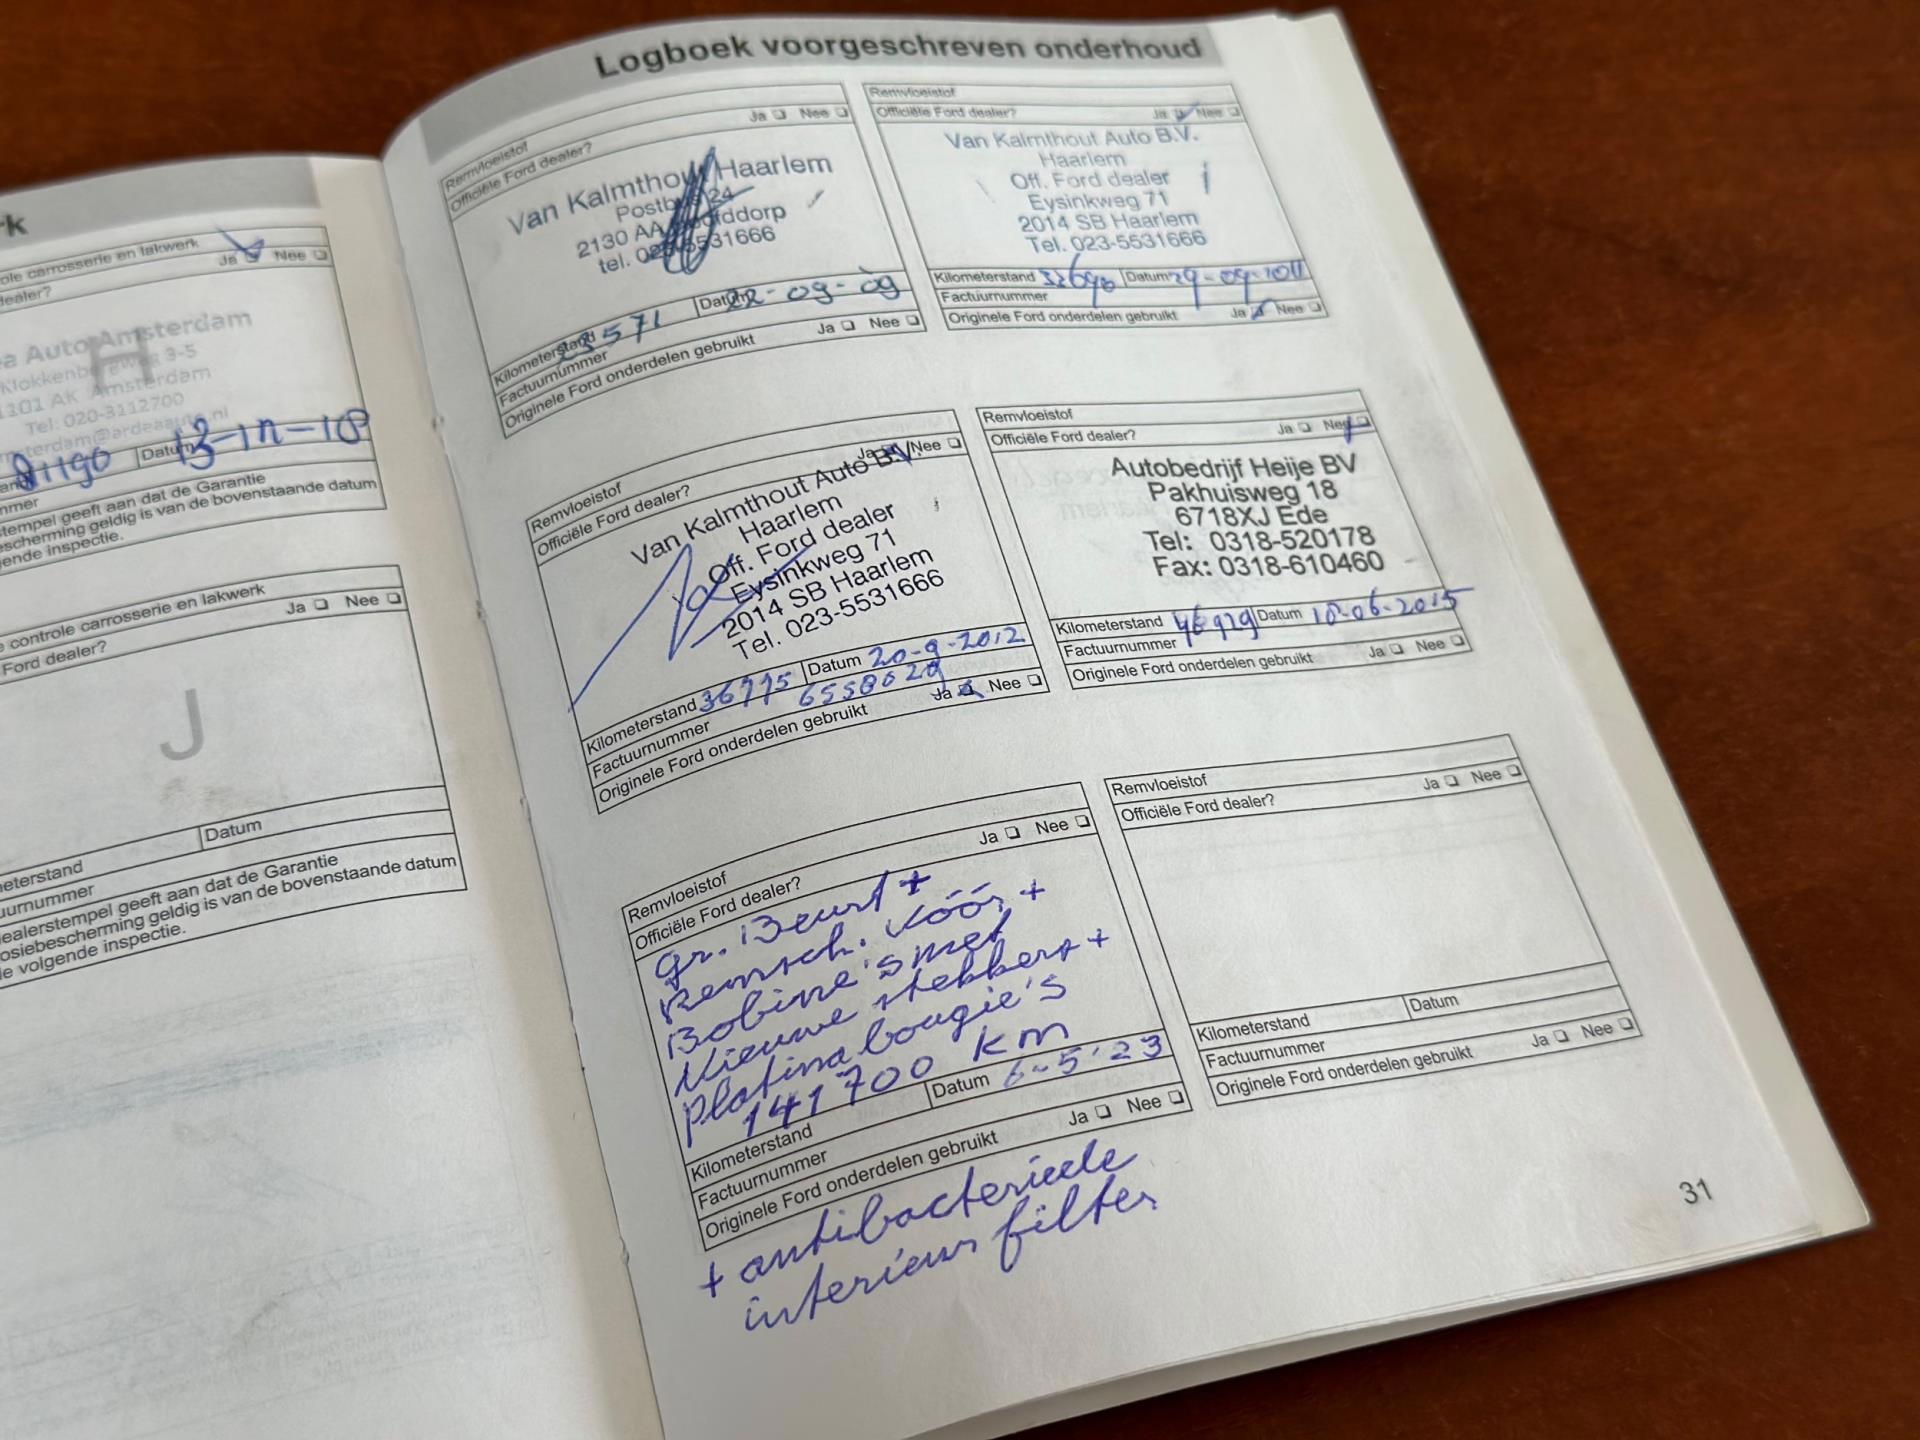 Logboek voorgeschreven onderhoud
rk
ole carrosserie en lakwerk
dealer?
Ja Nee
H
a Auto Amsterdam
3-5
1101 AK Amsterdam
Tel: 020-3112700
Datum 13-12-18
stempel geeft aan dat de Garantie
escherming geldig is van de bovenstaande datum
ende inspectie.
controle carrosserie en lakwerk
Ford dealer?
Ja Nee
J
eterstand
Datum
uurnummer
ealerstempel geeft aan dat de Garantie
osiebescherming geldig is van de bovenstaande datum
le volgende inspectie.
Remvloeistof
Officiële Ford dealer?
Ja Nee
Van Kalmthout Haarlem
2130 AA
tel.
Kilometerstand 23571
Datum 22-09-09
Factuurnummer
Originele Ford onderdelen gebruikt
Ja Nee
Remvloeistof
Officiële Ford dealer?
Ja Nee
Van Kalmthout Auto B.V.
Haarlem
Off. Ford dealer
Eysinkweg 71
2014 SB Haarlem
Tel. 023-5531666
Kilometerstand 32690
Datum 29-09-2011
Factuurnummer
Originele Ford onderdelen gebruikt
Ja Nee
Remvloeistof
Officiële Ford dealer?
Ja Nee
Van Kalmthout Auto B.V.
Haarlem
Off. Ford dealer
Eysinkweg 71
2014 SB Haarlem
Tel. 023-5531666
Kilometerstand 36775
Datum 20-9-2012
Factuurnummer 6558029
Originele Ford onderdelen gebruikt
Ja Nee
Remvloeistof
Officiële Ford dealer?
Ja Nee
Autobedrijf Heije BV
Pakhuisweg 18
6718XJ Ede
Tel: 0318-520178
Fax: 0318-610460
Kilometerstand 46929
Datum 18-06-2015
Factuurnummer
Originele Ford onderdelen gebruikt
Ja Nee
Remvloeistof
Officiële Ford dealer?
Ja Nee
gr. Beurt +
Remsch. vóór +
Bobine's met
Nieuwe stekkers +
platina bougie's
141700 km
Kilometerstand
Datum 6-5'23
Factuurnummer
Originele Ford onderdelen gebruikt
Ja Nee
+ antibacteriele
interieur filter
Remvloeistof
Officiële Ford dealer?
Ja Nee
Kilometerstand
Datum
Factuurnummer
Originele Ford onderdelen gebruikt
Ja Nee
31